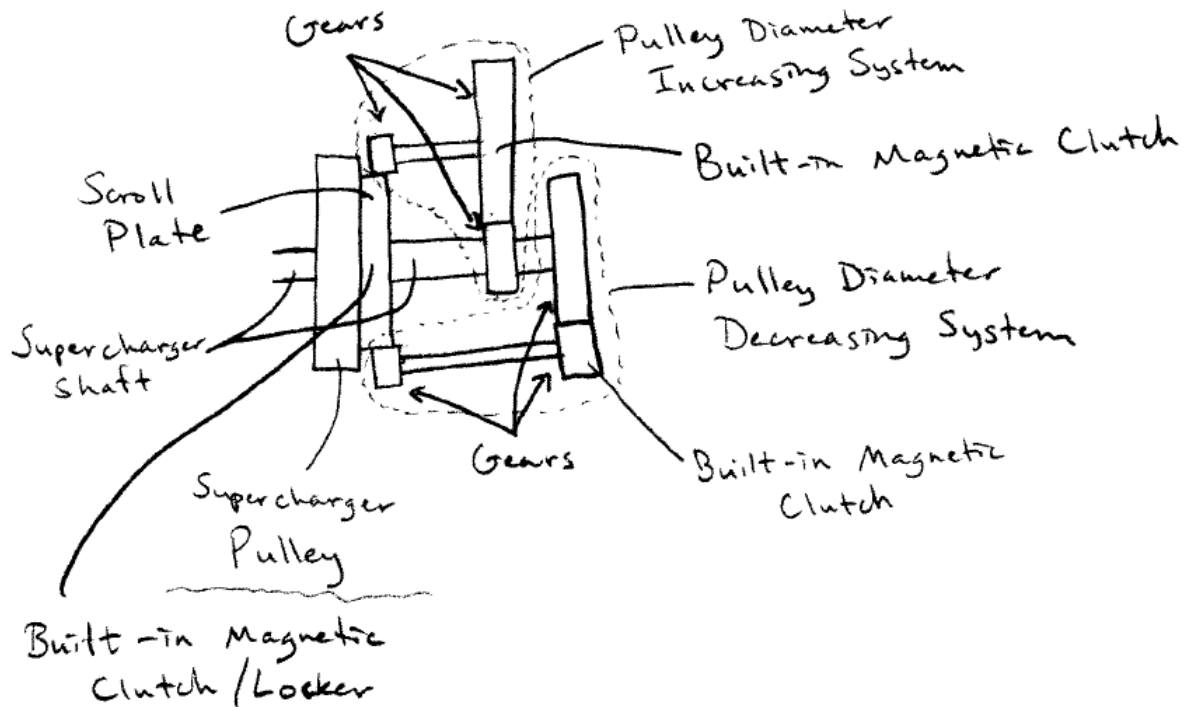 Gears
Pulley Diameter
Increasing System
Built-in Magnetic Clutch
Scroll
Plate
Pulley Diameter
Decreasing System
Supercharger
Shaft
Gears
Built-in Magnetic
Clutch
Supercharger
Pulley
Built-in Magnetic
Clutch/Locker